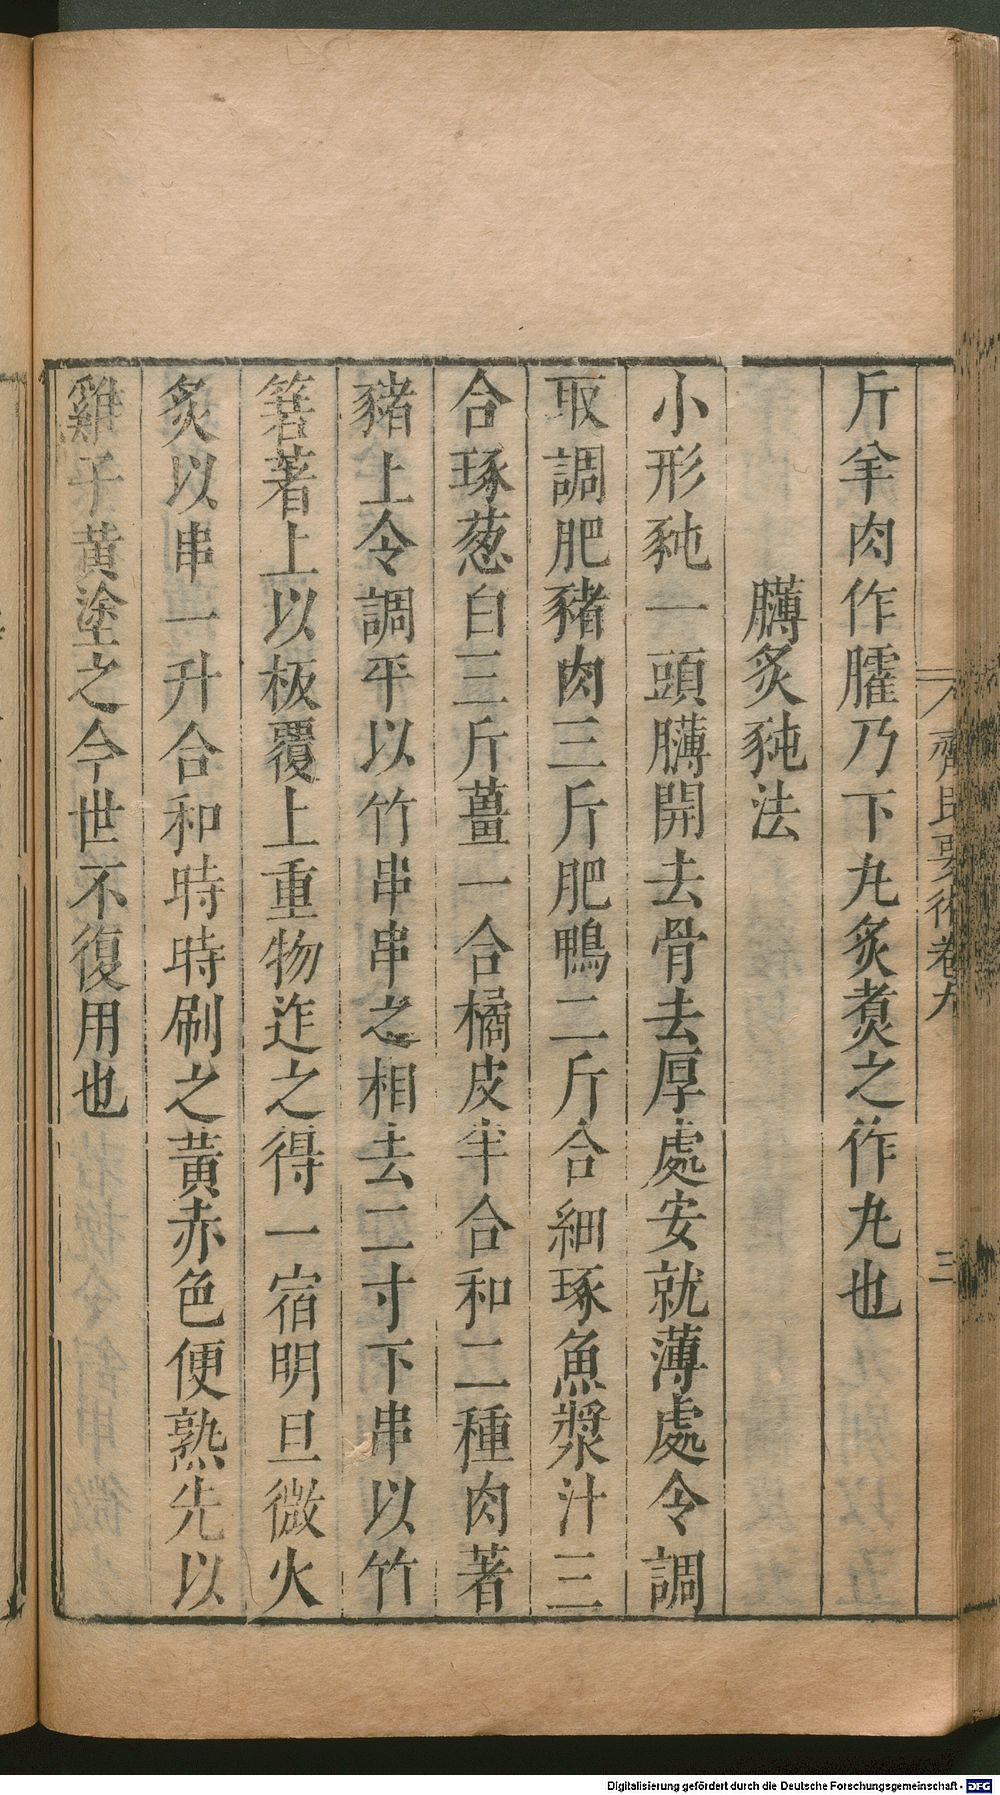 齊民要術卷九
三
斤羊肉作臛乃下丸炙煑之作丸也
膊炙㹠法
小形㹠一頭膊開去骨去厚處安就薄處令調
取調肥豬肉三斤肥鴨二斤合細琢魚漿汁三
合琢葱白三斤薑一合橘皮半合和二種肉著
豬上令調平以竹串串之相去二寸下串以竹
箬著上以板覆上重物迮之得一宿明旦微火
炙以串一升合和時時刷之黃赤色便熟先以
雞子黃塗之今世不復用也
Digitalisierung gefördert durch die Deutsche Forschungsgemeinschaft - DFG